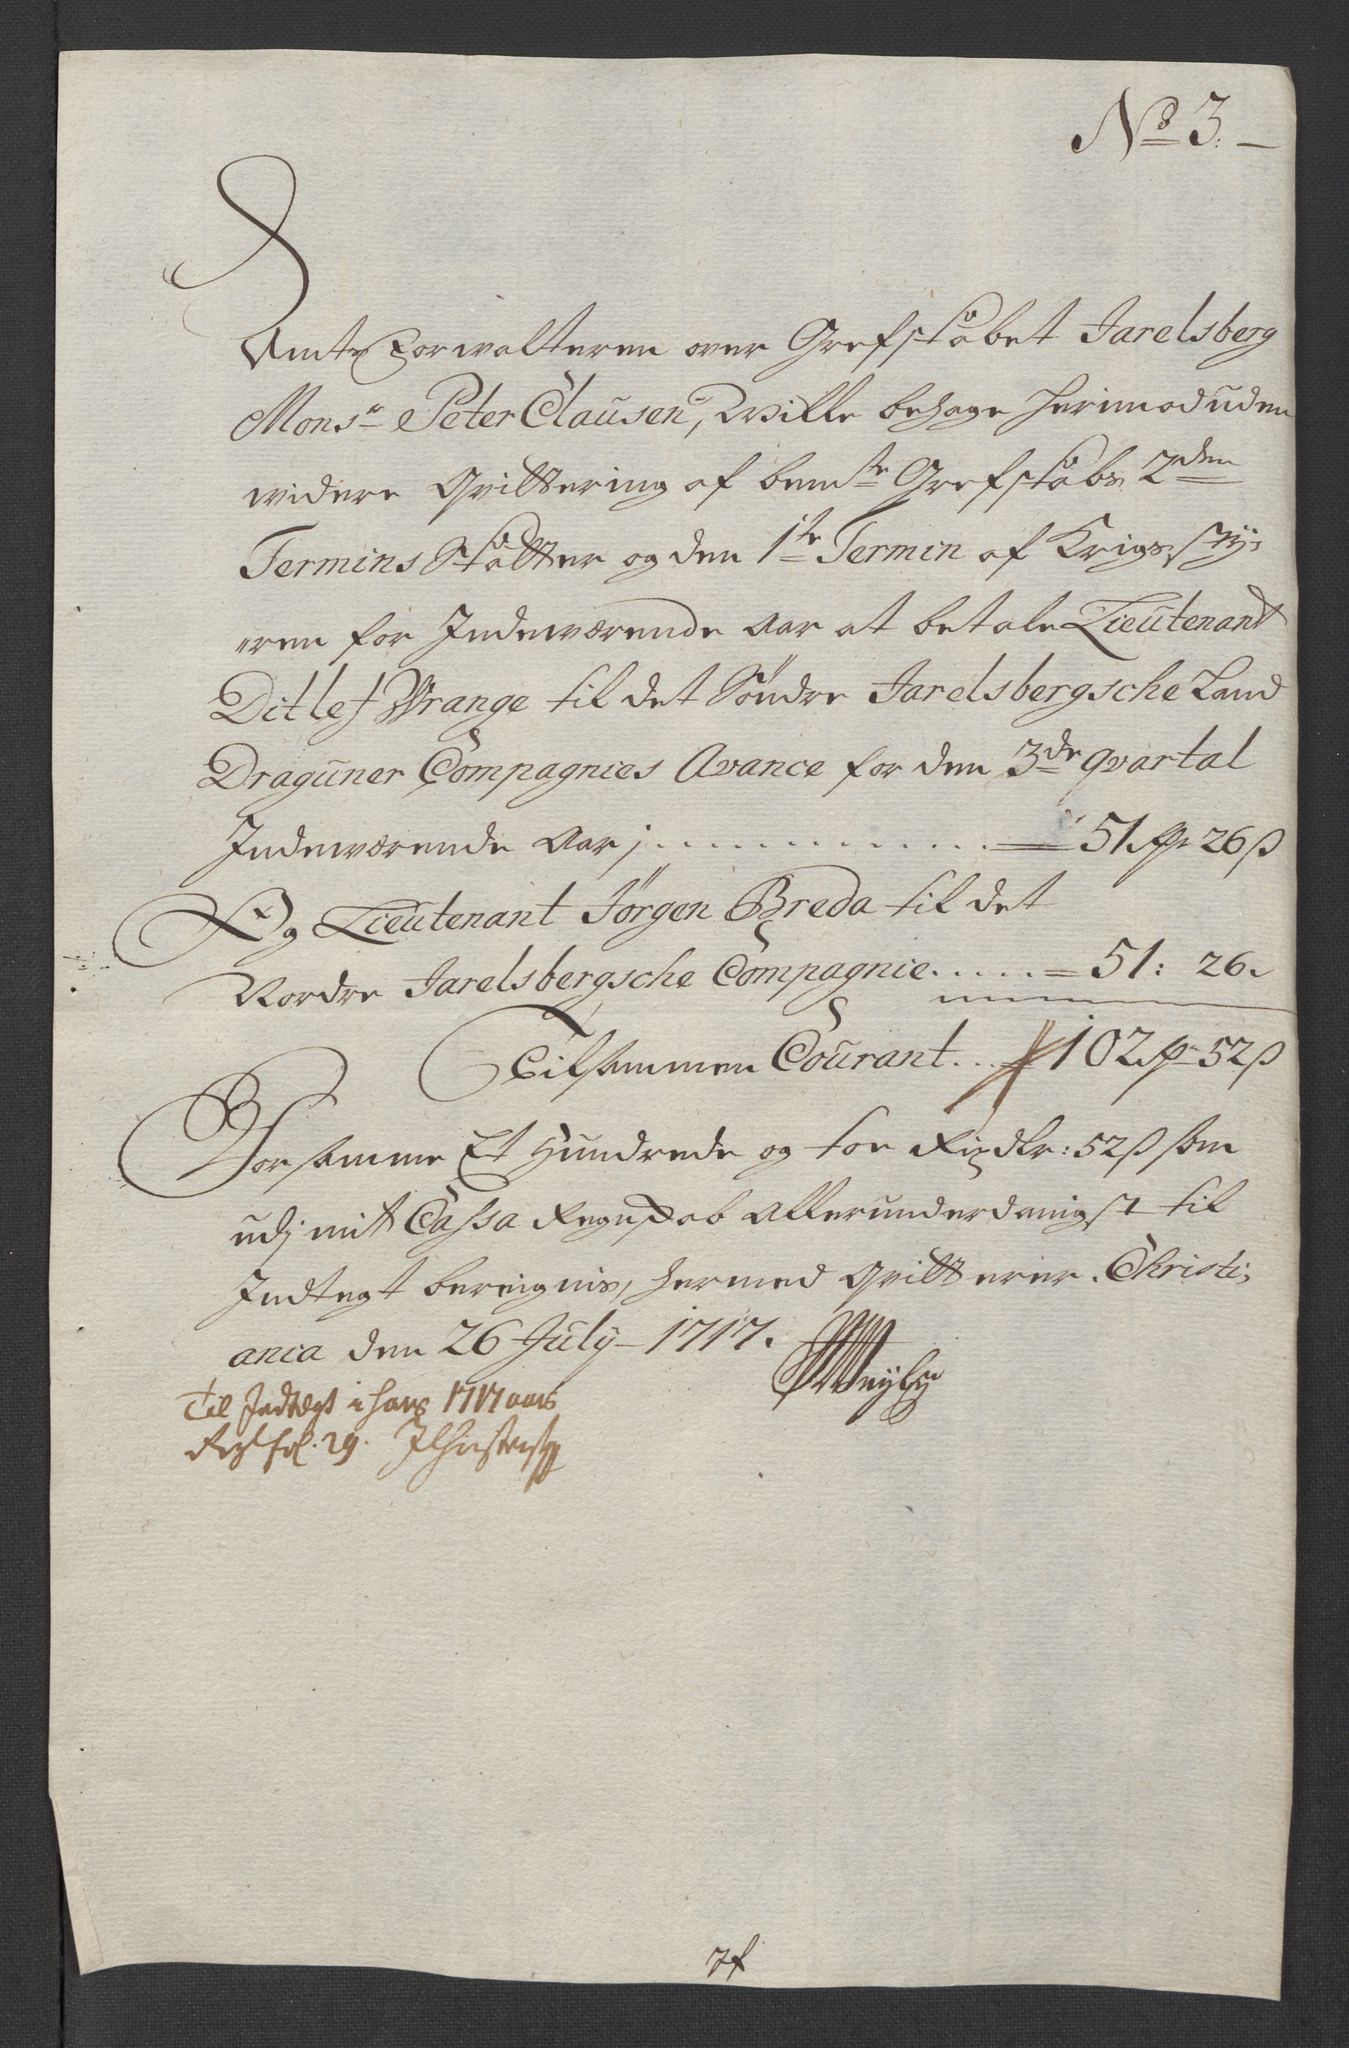 No 3.
Amts Forwalteren over Grefskabet Jarelsberg
Monsr Peter Clausen, Wille behage herimod uden
widere Qvittering af bemte Grefskabs 2den
Termins Skatter og den 1te Termin af Krigs sty=
"ren for Indewærende Aar at betale Lieutenant
Ditlef Wrange til det Söndre Jarelsbergsche Land
Draguner Compagnies Avance for den 3de qvartal
Indewærende Aar, 51 Rdr 26 s
Og Lieutenant Jörgen Breda til det
Nordre Jarelsbergsche Compagnie 51: 26.
Tilsammen Courant 102 Rdr 52 s
For samme Et Hundrede og toe Rixdlr: 52 s som
udj mit Cassa Regnskab Allerunderdanigst til
Indtegt bereignis, hermed Qvitterer. Christi=
ania den 26 July 1717.
Til Indtægt i hans 1717 aars
Regl fol. 29.